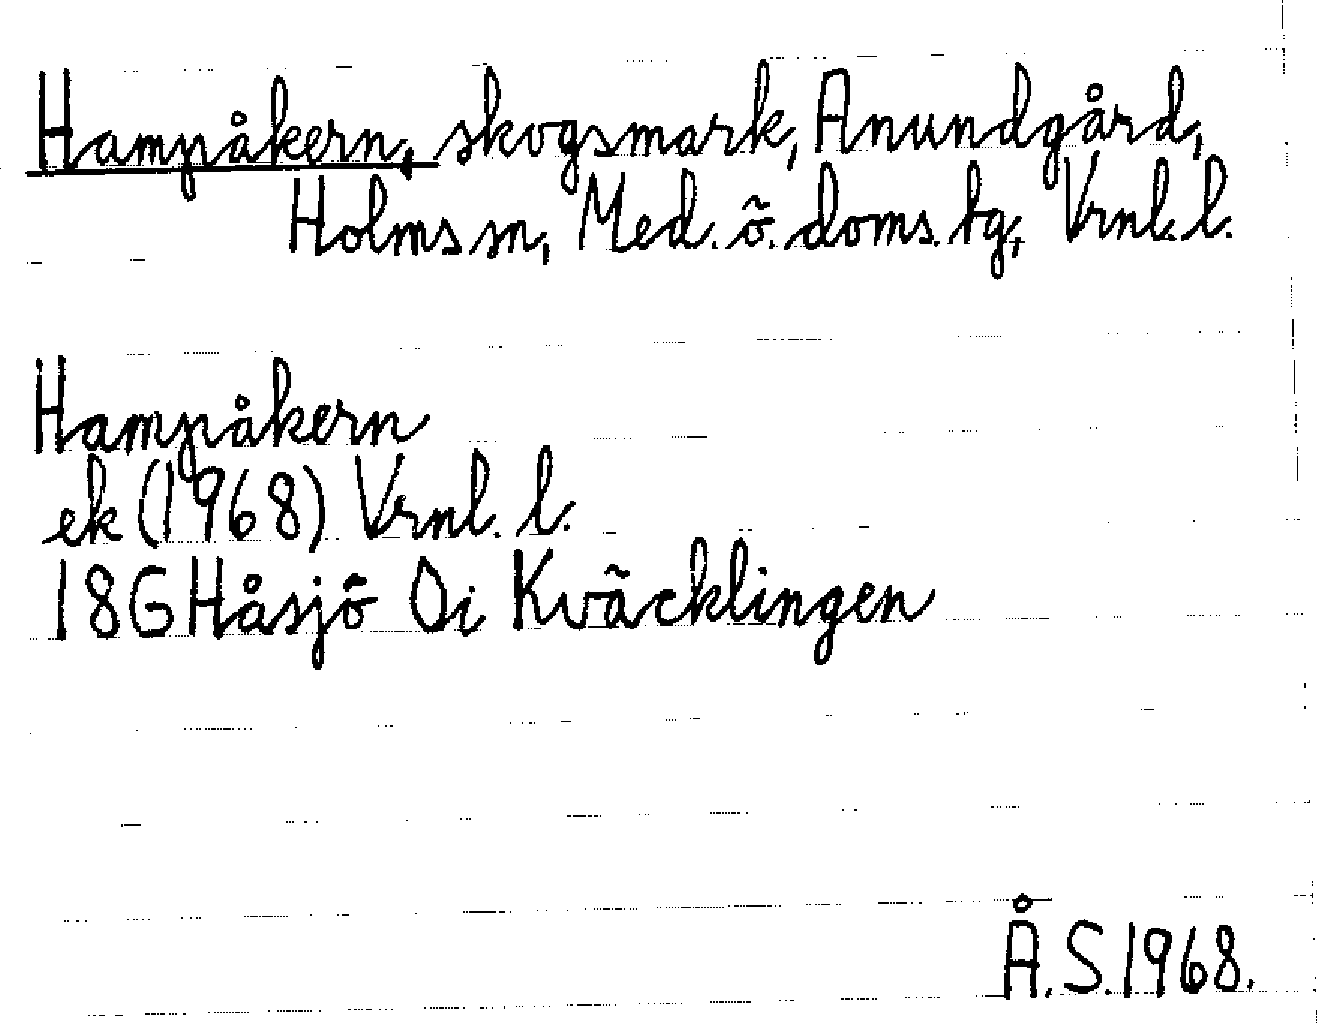 Hampåkern, skogsmark, Anundgård,
Holms sn, Med. ö. doms. tg, Vrnl. l.
Hampåkern
ek (1968) Vrnl. l.
18G Håsjö Oi Kväcklingen
Å. S. 1968.